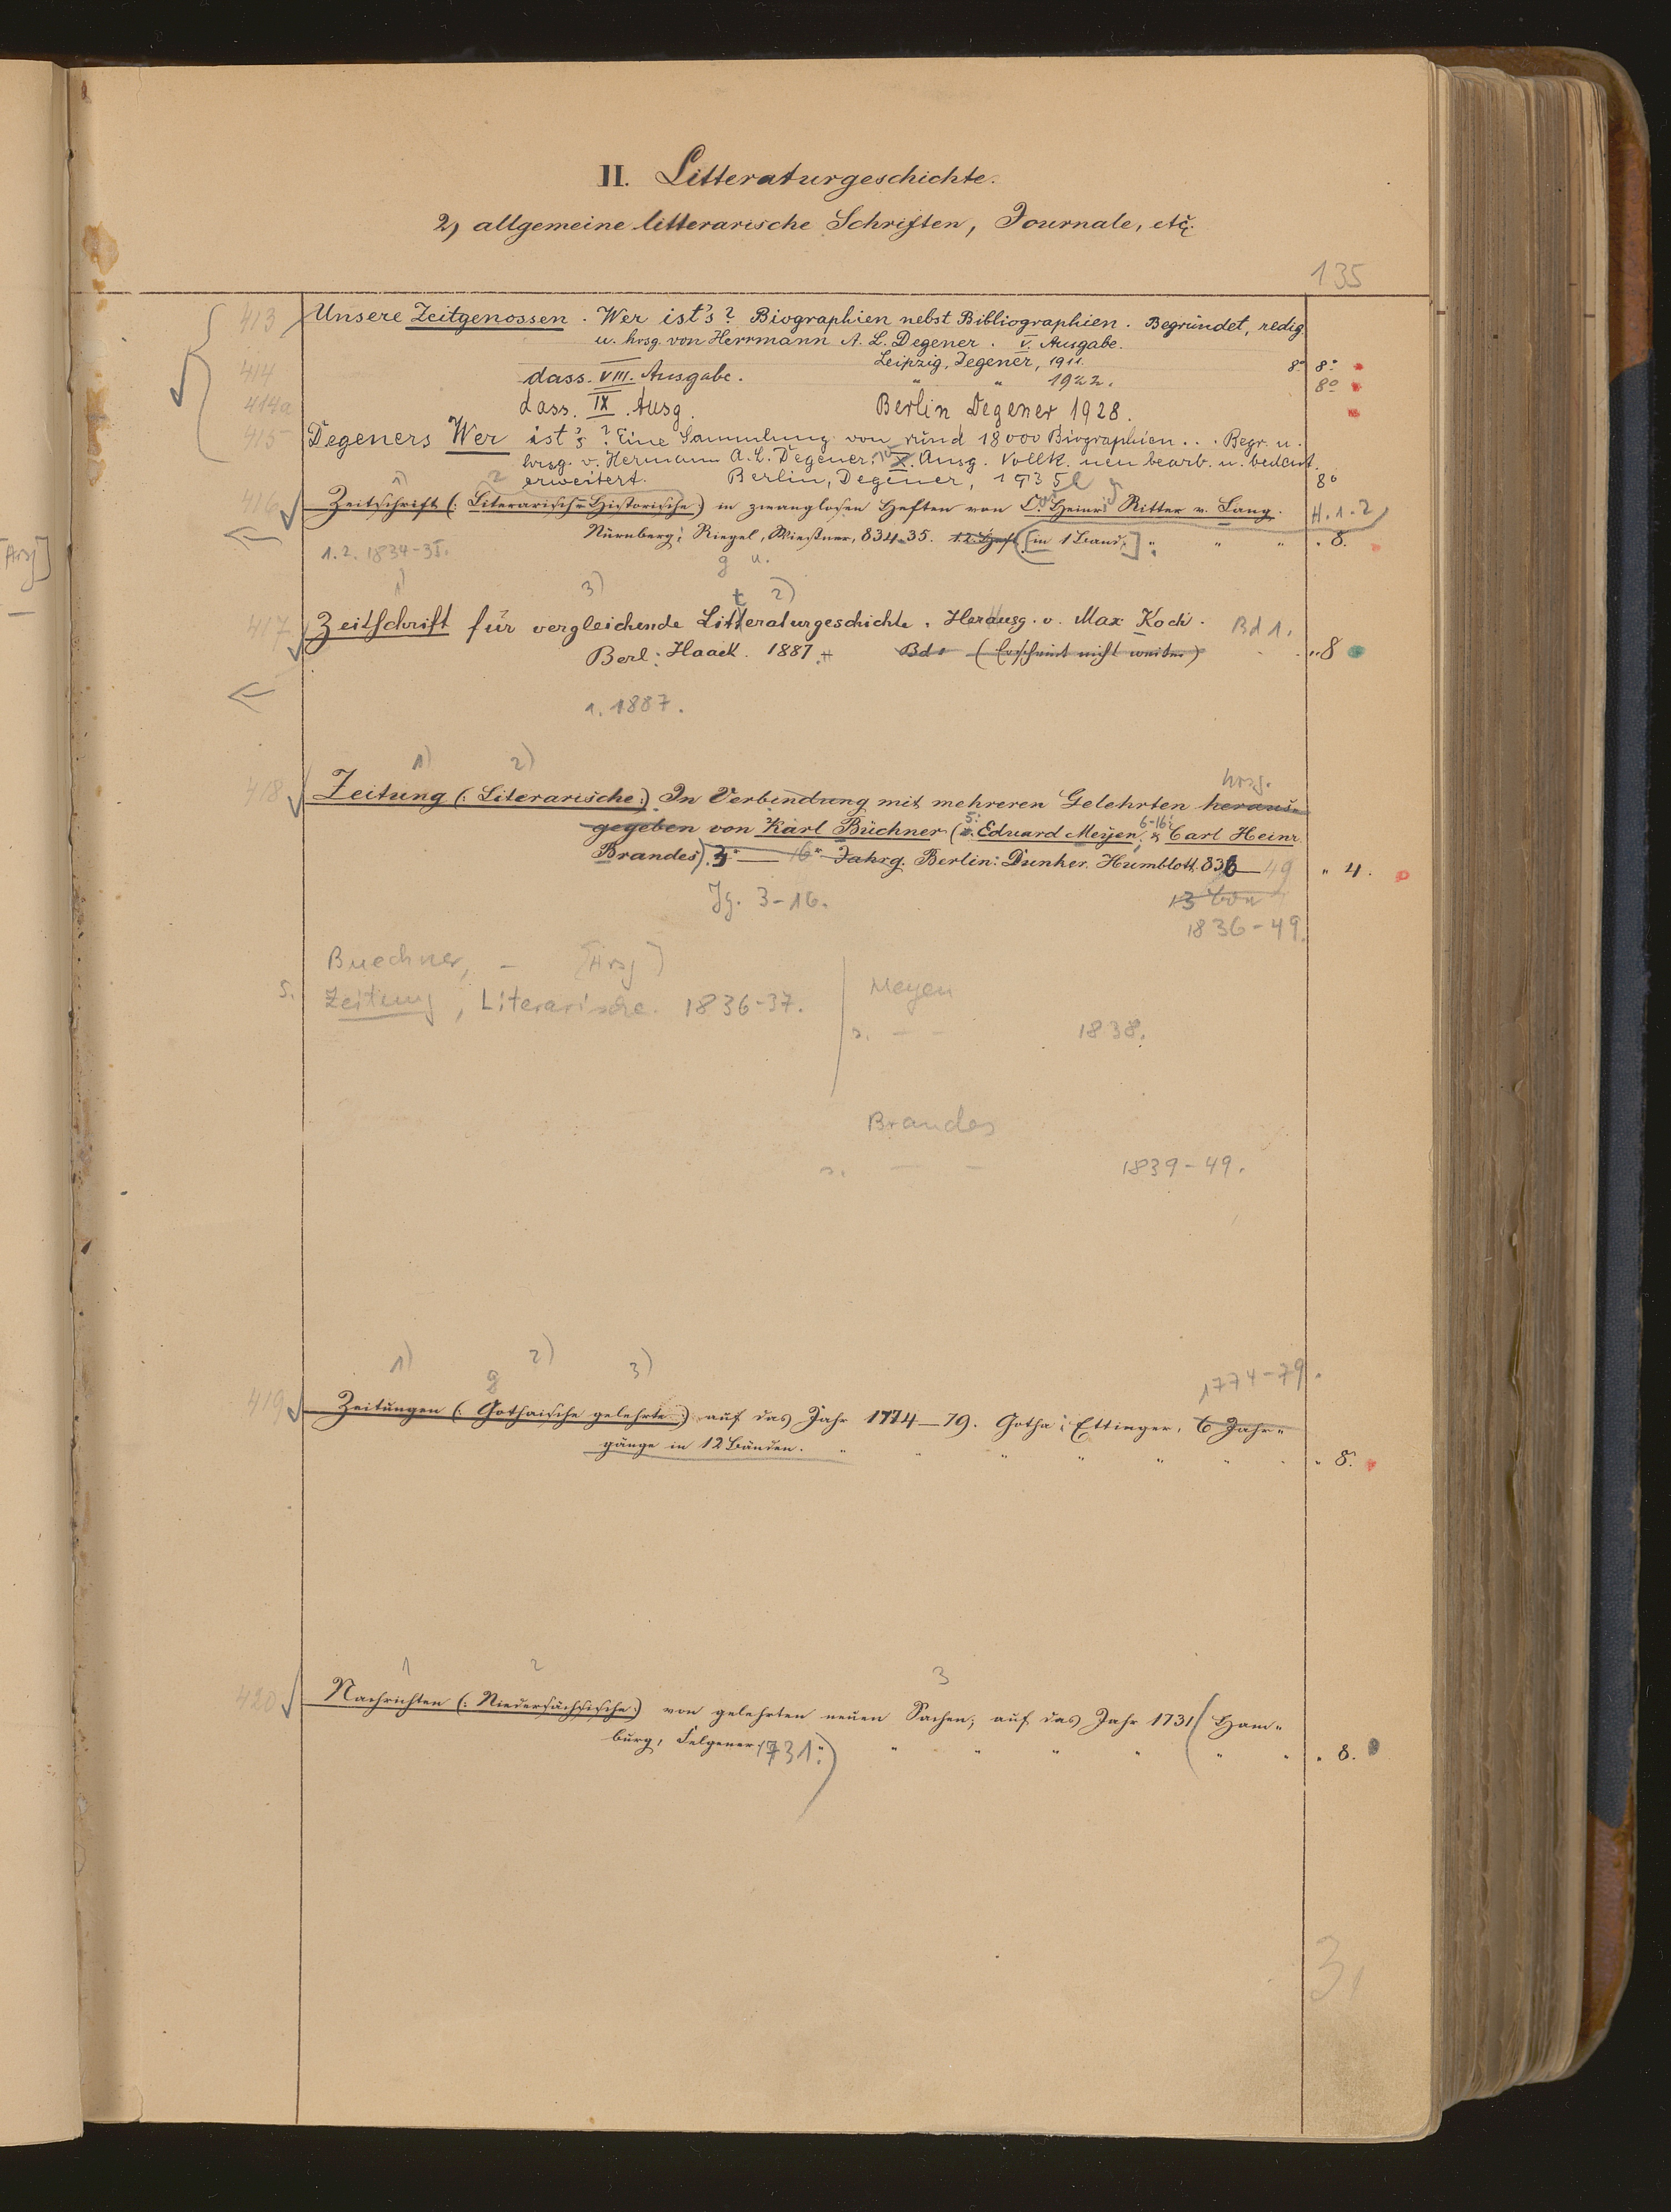 II. Litteraturgeschichte.
2) allgemeine litterarische Schriften, Journale, etc.
135
413 Unsere Zeitgenossen. Wer ist's? Biographien nebst Bibliographien. Begründet, redig.
u. hrsg. von Herrmann A. L. Degener. V. Ausgabe.
Leipzig, Degener, 1911. 8° 8°
414 dass. VIII. Ausgabe. " " 1922. 8°
414a dass. IX. Ausg. Berlin Degener 1928.
415 Degeners Wer ist's? Eine Sammlung von rund 18000 Biographien... Begr. u.
hrsg. v. Hermann A. L. Degener. X. Ausg. Vollk. neu bearb. u. bedeut.
erweitert. Berlin, Degener, 1935 8°
1) 2
416 Zeitschrift (: Literarisch-Historische:) in zwanglosen Heften von C. Heinr. Ritter v. Lang. H. 1.2
Nürnberg: Riegel, Wießner, 834-35. 1.2. Heft [in 1 Band.] " " " " 8.
[Hrsg]
1.2. 1834-35.
g u.
1) 3) t 2)
417 Zeitschrift für vergleichende Litteraturgeschichte. Herausg. v. Max Koch. Bd 1.
Berl: Haack. 1887. Bd 1 (Erscheint nicht weiter) " 8
1. 1887.
1) 2) hrsg.
418 Zeitung (: Literarische:) In Verbindung mit mehreren Gelehrten heraus-
gegeben von Karl Büchner (5: Eduard Meyen, 6-16: & Carl Heinr.
Brandes). 3r — 16r Jahrg. Berlin: Dunker. Humblott. 836—49 " 4.
Jg. 3-16. 13
1836-49.
Buechner, - [Hrsg]
s. Zeitung, Literarische. 1836-37.
Meyen
s. — — 1838.
Brandes
s. — — 1839-49.
1) g 2) 3) 1774-79.
419 Zeitungen (: Gothaische gelehrte:) auf das Jahr 1774—79. Gotha: Ettinger, 6 Jahr-
gänge in 12 Bänden. " " " " " " " 8.
1 2 3
420 Nachrichten (: Niedersächsische:) von gelehrten neuen Sachen; auf das Jahr 1731 (Ham-
burg, Felgener 1731.) " " " " " " " 8.
3,